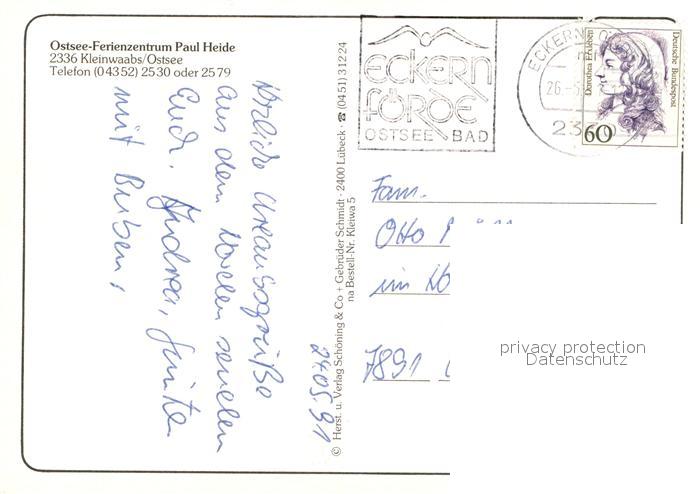 Ostsee-Ferienzentrum Paul Heide
2336 Kleinwaabs/Ostsee
Telefon (0 43 52) 25 30 oder 25 79
Herzliche Urlaubsgrüße
aus dem Norden senden
Euch, Andrea, Günter
mit Buben,
24.05.91
© Herst. u. Verlag Schöning & Co + Gebrüder Schmidt · 2400 Lübeck · ☎ (04 51) 3 12 24
na Bestell-Nr. Kleiwa 5
ECKERN
FÖRDE
OSTSEE BAD
ECKERN
26.-5.
23
Dorothea Erxleben
Deutsche Bundespost
60
Fam.
Otto
im
7891
privacy protection
Datenschutz